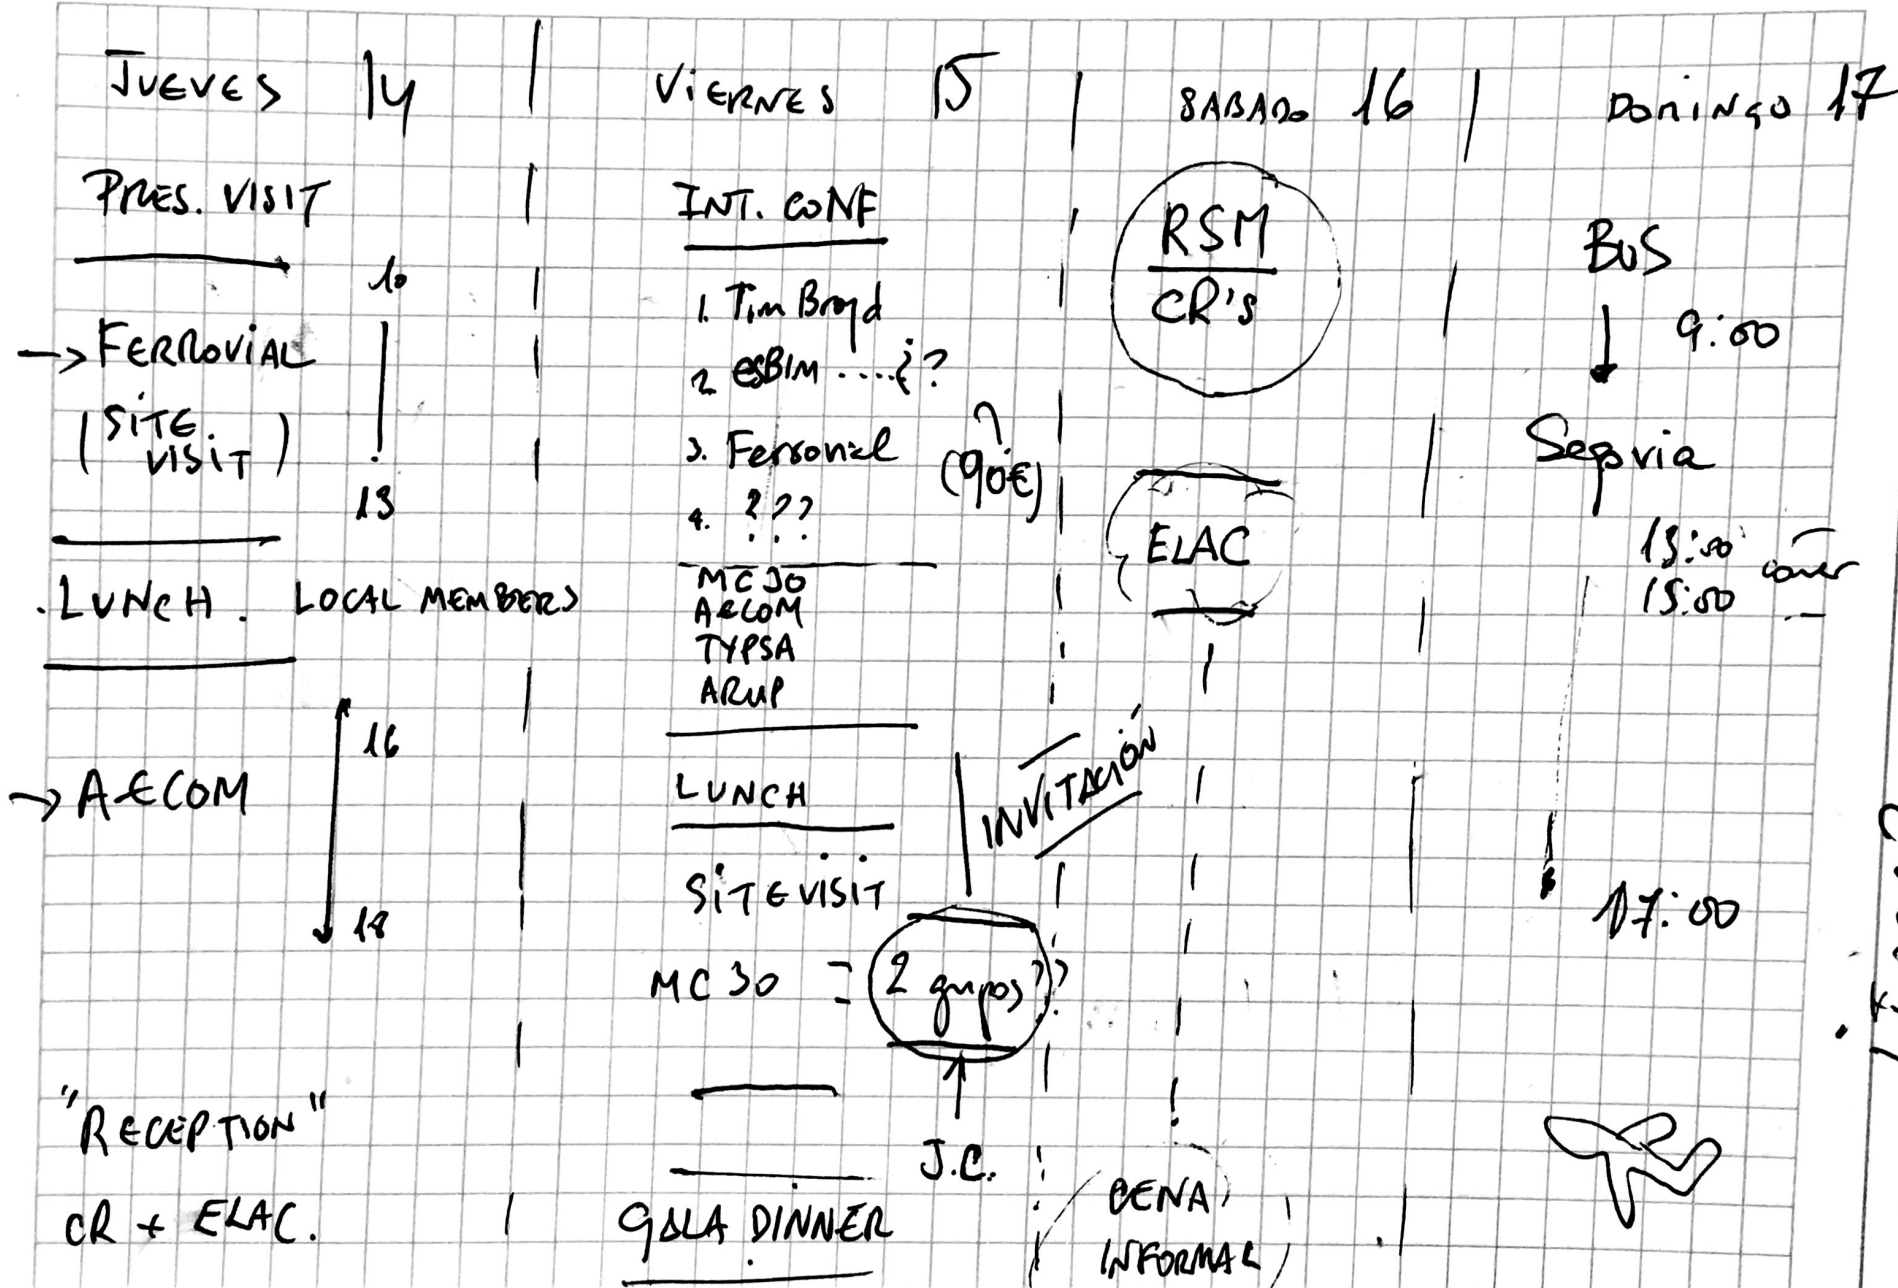 JUEVES 14
PRES. VISIT
10
→ FERROVIAL
(SITE
VISIT)
13
LUNCH. LOCAL MEMBERS
16
→ AECOM
18
"RECEPTION"
CR + ELAC.
VIERNES 15
INT. CONF
1. Tim Broyd
2 esBIM ....¿?
3. Ferrovial
?
(90€)
4. ???
MC30
AECOM
TYPSA
ARUP
LUNCH
INVITACIÓN
SITE VISIT
MC30 = 2 grupos??
J.C.
GALA DINNER
SABADO 16
RSM
CR's
ELAC
CENA
INFORMAL
DOMINGO 17
BUS
↓ 9:00
Segovia
13:00
comer
15:00
17:00